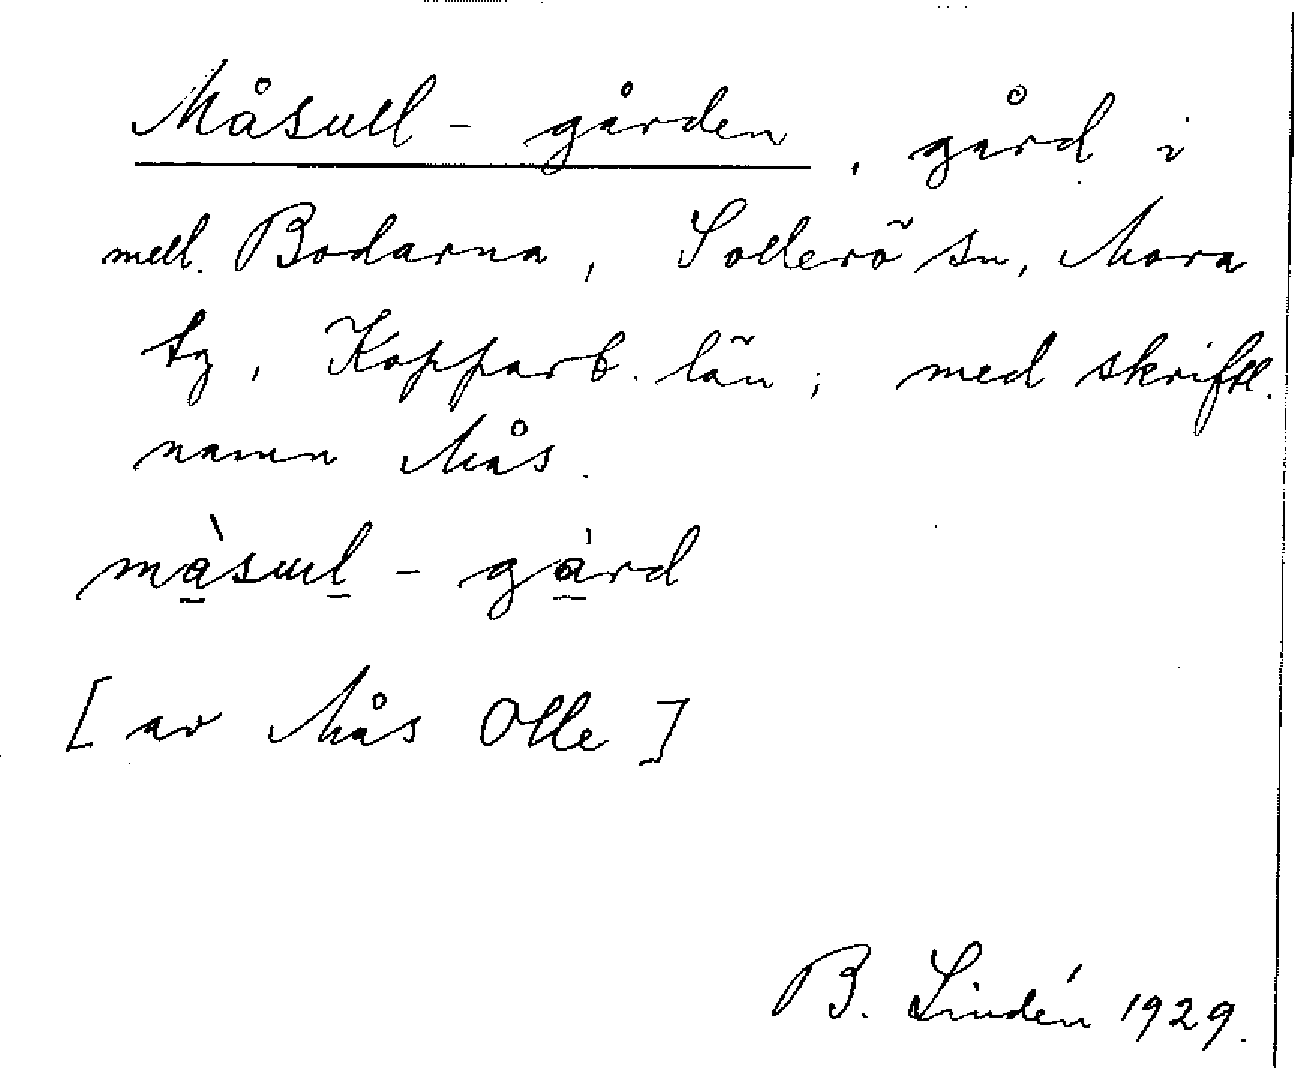 Måsull-gården, gård i
mell. Bodarna, Sollerö sn, Mora
tg, Kopparb. län; med skriftl.
namn Mås.
màsuɯl-gàrd
[av Mås Olle]
B. Lindén 1929.